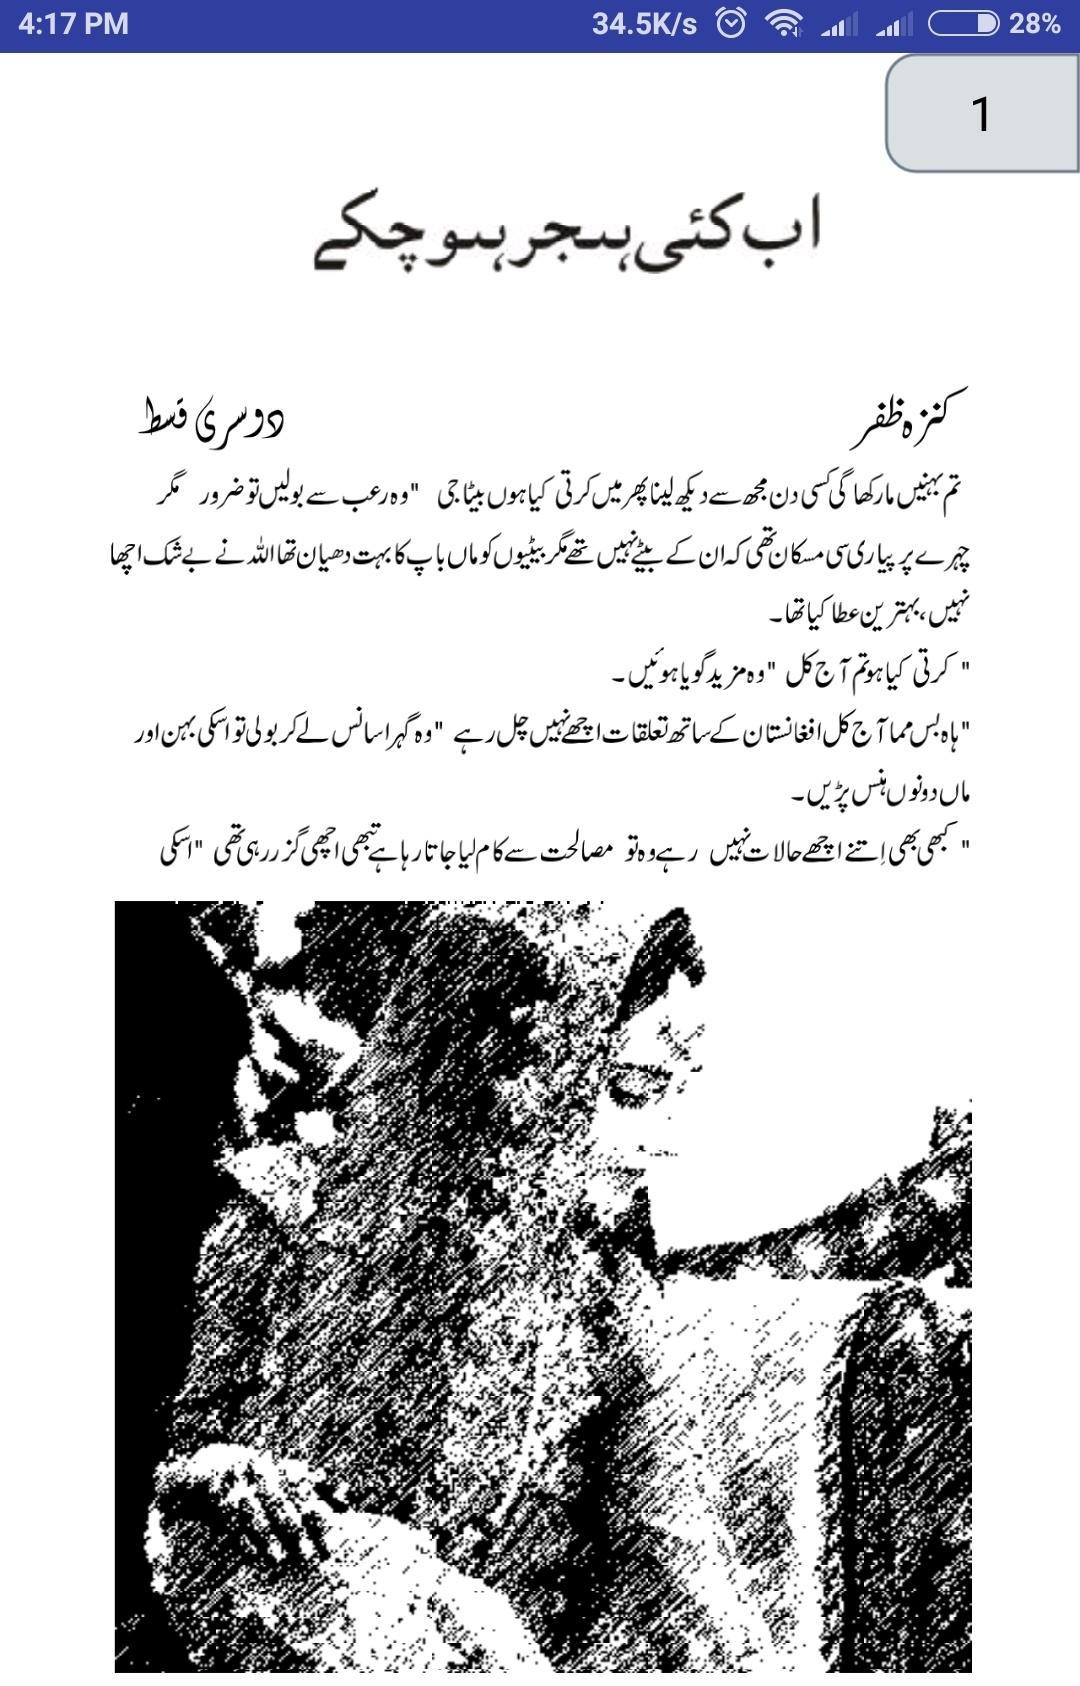 4:17 PM 34.5K/s 28%
1
اب کئی ہجر ہو چکے
کنزہ ظفر دوسری قسط
تم بہنیں مار کھا گی کسی دن مجھ سے دیکھ لینا پھر میں کرتی کیا ہوں بیٹا جی "وہ رعب سے بولیں تو ضرور مگر
چہرے پر پیاری سی مسکان تھی کہ ان کے بیٹے نہیں تھے مگر بیٹیوں کو ماں باپ کا بہت دھیان تھا اللہ نے بے شک اچھا
نہیں، بہترین عطا کیا تھا۔
" کرتی کیا ہو تم آج کل "وہ مزید گویا ہوئیں۔
"ہاہ بس مما آج کل افغانستان کے ساتھ تعلقات اچھے نہیں چل رہے "وہ گہرا سانس لے کر بولی تو اسکی بہن اور
ماں دونوں ہنس پڑیں۔
" کبھی بھی اِتنے اچھے حالات نہیں رہے وہ تو مصالحت سے کام لیا جاتا رہا ہے تبھی اچھی گزر رہی تھی "اسکی